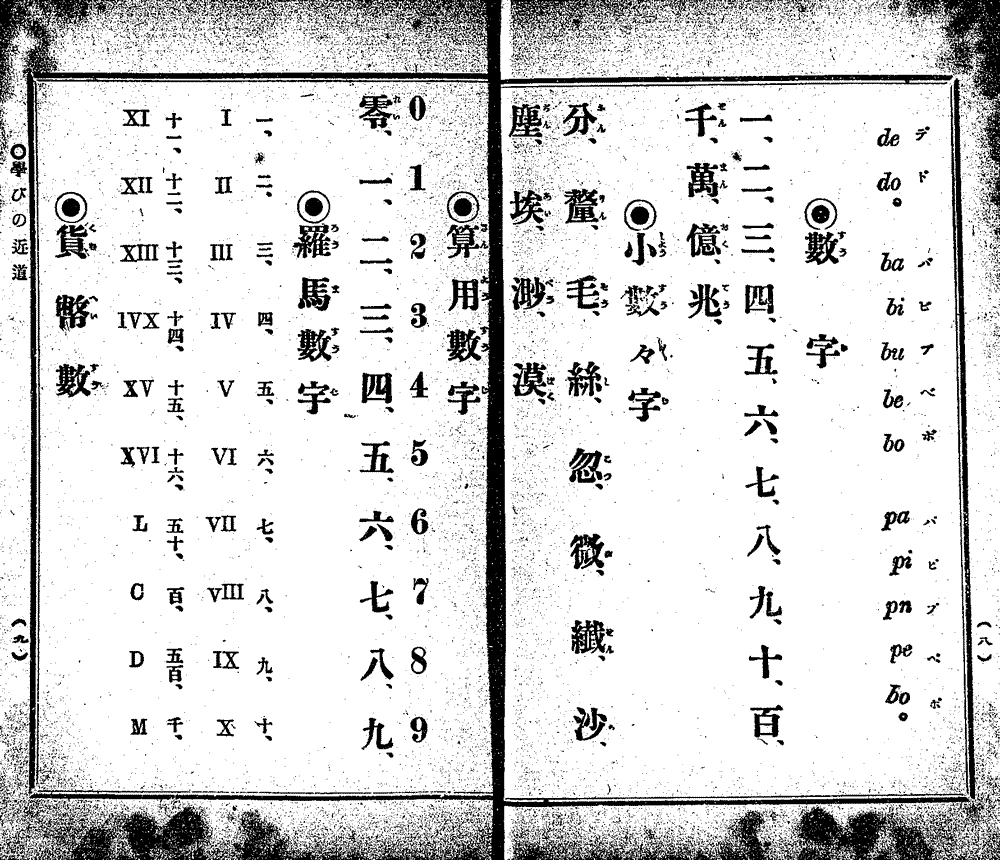 デ de
ド do。
バ ba
ビ bi
ブ bu
ベ be
ボ bo
パ pa
ピ pi
プ pn
ペ pe
ポ bo。
◉數字
一、二、三、四、五、六、七、八、九、十、百、
千、萬、億、兆、
◉小數々字
分、釐、毛、絲、忽、微、纖、沙、
塵、埃、渺、漠、
(八)
◉算用數字
0 1 2 3 4 5 6 7 8 9
零、一、二、三、四、五、六、七、八、九、
◉羅馬數字
一、二、三、四、五、六、七、八、九、十、
I II III IV V VI VII VIII IX X
十一、十二、十三、十四、十五、十六、五十、百、五百、千、
XI XII XIII IVX XV XVI L C D M
◉貨幣數
○學びの近道
(九)